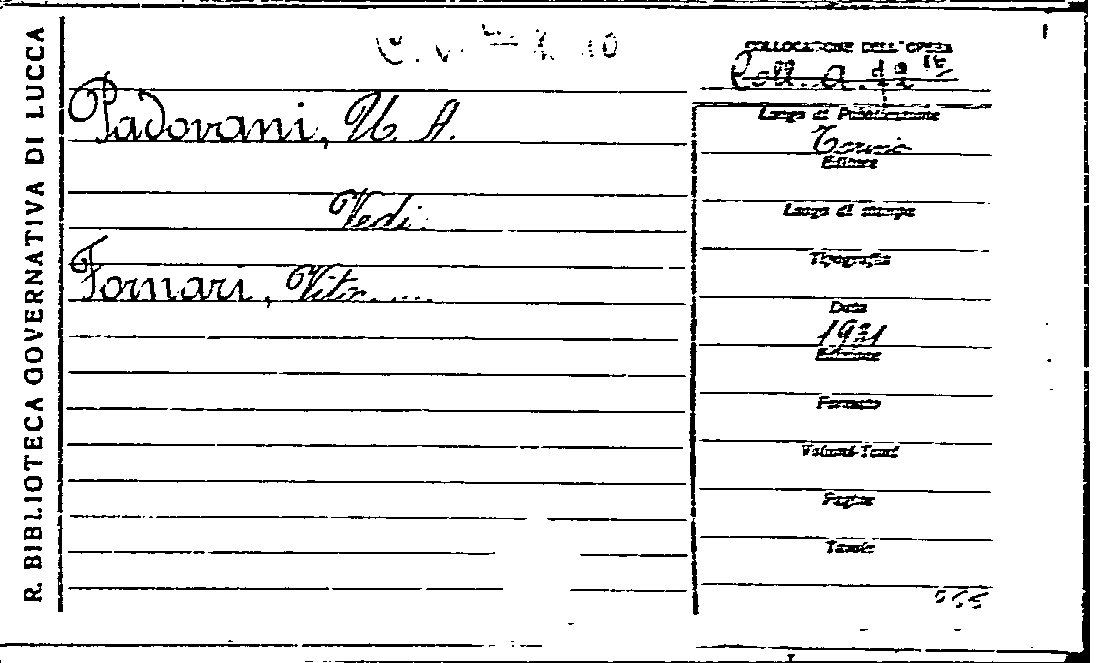 R. BIBLIOTECA GOVERNATIVA DI LUCCA
COLLOCAZIONE DELL'OPERA
Coll. A.
Padovani, U. A.
Vedi
Fornari,
Luogo di Pubblicazione
Torino
Editore
Luogo di stampa
Tipografia
Data
1931
Edizione
Formato
Volumi-Tomi
Pagine
Tavole